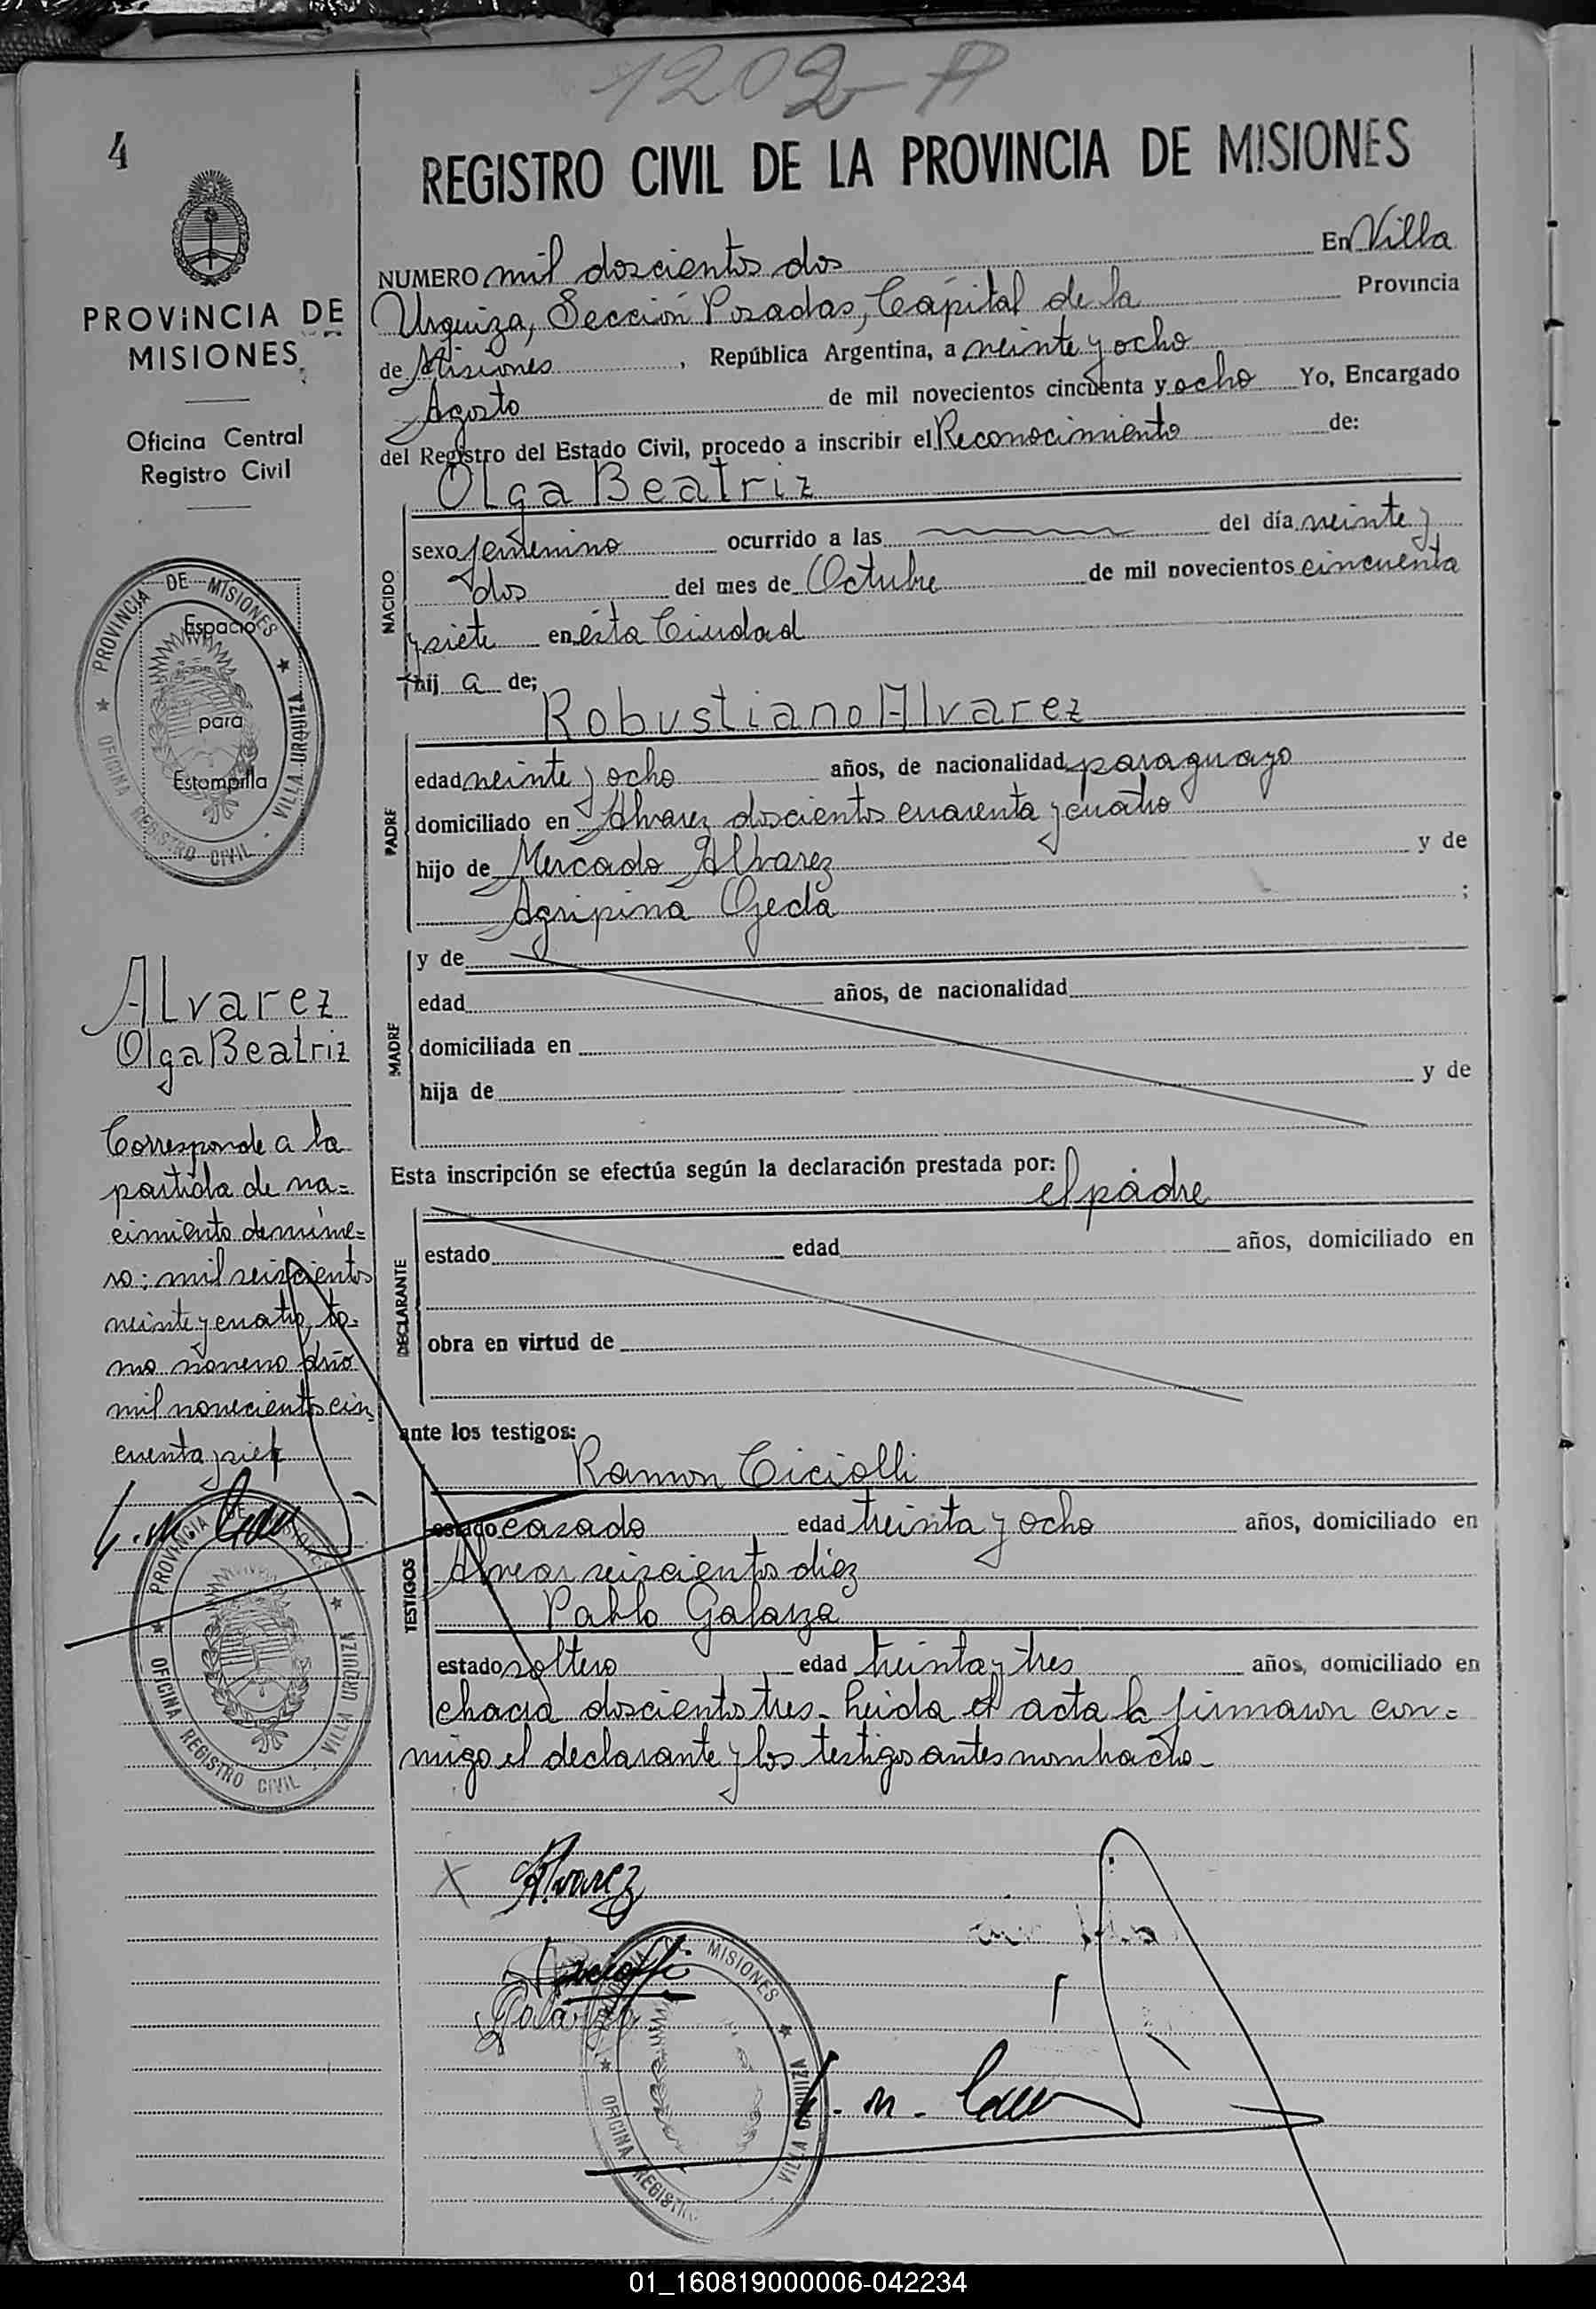 1202-A
4
PROVINCIA DE
MISIONES
Oficina Central
Registro Civil
PROVINCIA DE MISIONES
OFICINA REGISTRO CIVIL - VILLA URQUIZA
Espacio
para
Estampilla
ALvarez
Olga Beatriz
Corresponde a la
partida de na=
cimiento de núme=
ro: mil seiscientos
veinte y cuatro, to=
mo noveno año
mil novecientos cin
cuenta y siete
PROVINCIA DE MISIONES
OFICINA REGISTRO CIVIL VILLA URQUIZA
REGISTRO CIVIL DE LA PROVINCIA DE MISIONES
NUMERO mil doscientos dos En Villa
Urquiza, Sección Posadas, Capital de la Provincia
de Misiones, República Argentina, a veinte y ocho
Agosto de mil novecientos cincuenta y ocho Yo, Encargado
del Registro del Estado Civil, procedo a inscribir el Reconocimiento de:
OLga Beatriz
NACIDO
sexo femenino ocurrido a las del día veinte y
dos del mes de Octubre de mil novecientos cincuenta
y siete en ésta Ciudad
hij a de;
Robustiano Alvarez
PADRE
edad veinte y ocho años, de nacionalidad paraguayo
domiciliado en Alvarez doscientos cuarenta y cuatro
hijo de Mercado Alvarez y de
Agripina Ojeda ;
MADRE
y de
edad años, de nacionalidad
domiciliada en
hija de y de
Esta inscripción se efectúa según la declaración prestada por: el padre
DECLARANTE
estado edad años, domiciliado en
obra en virtud de
ante los testigos:
Ramon Ciciolli
TESTIGOS
estado casado edad treinta y ocho años, domiciliado en
Alvear seiscientos diez
Pablo Galarza
estado soltero edad treinta y tres años, domiciliado en
chacra doscientos tres. Leida el acta la firmaron con=
migo el declarante y los testigos antes nombrados.
X Alvarez
PROVINCIA DE MISIONES
OFICINA REGISTRO VILLA URQUIZA
01_160819000006-042234